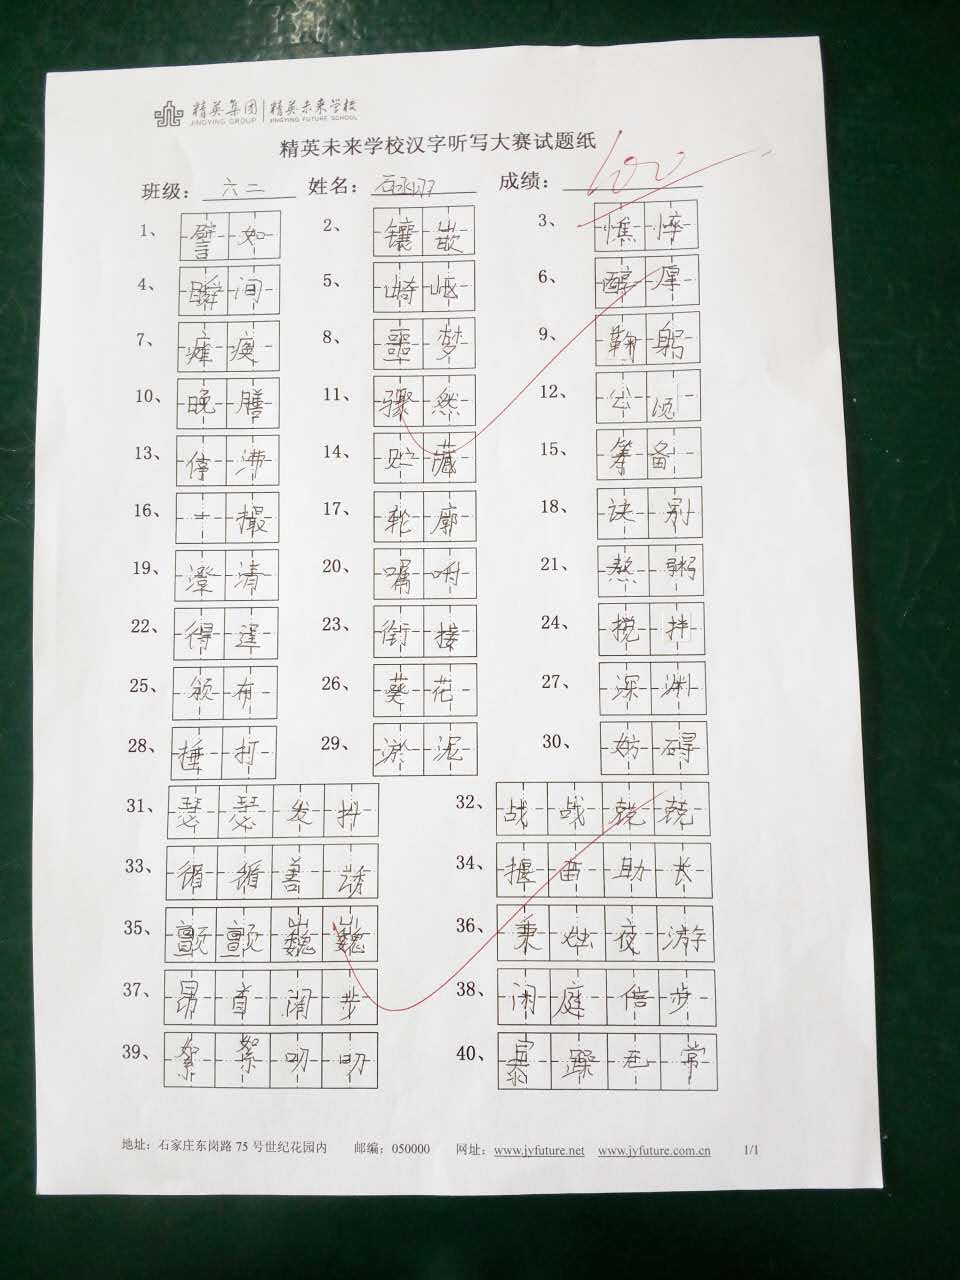 精英集团 精英未来学校
JINGYING GROUP JINGYING FUTURE SCHOOL
精英未来学校汉字听写大赛试题纸
班级： 六二 姓名： 成绩： 100
1、 譬如 2、 镶嵌 3、 憔悴
4、 瞬间 5、 崎岖 6、 醇厚
7、 瘫痪 8、 噩梦 9、 鞠躬
10、 晚膳 11、 骤然 12、 公顷
13、 停滞 14、 贮藏 15、 筹备
16、 一撮 17、 轮廓 18、 诀别
19、 澄清 20、 嘱咐 21、 熬粥
22、 得逞 23、 衔接 24、 搅拌
25、 颁布 26、 葵花 27、 深渊
28、 捶打 29、 淤泥 30、 妨碍
31、 瑟瑟发抖 32、 战战兢兢
33、 循循善诱 34、 揠苗助长
35、 颤颤巍巍 36、 秉烛夜游
37、 昂首阔步 38、 闲庭信步
39、 絮絮叨叨 40、 暴躁无常
地址：石家庄东岗路 75 号世纪花园内 邮编：050000 网址：www.jyfuture.net www.jyfuture.com.cn 1/1